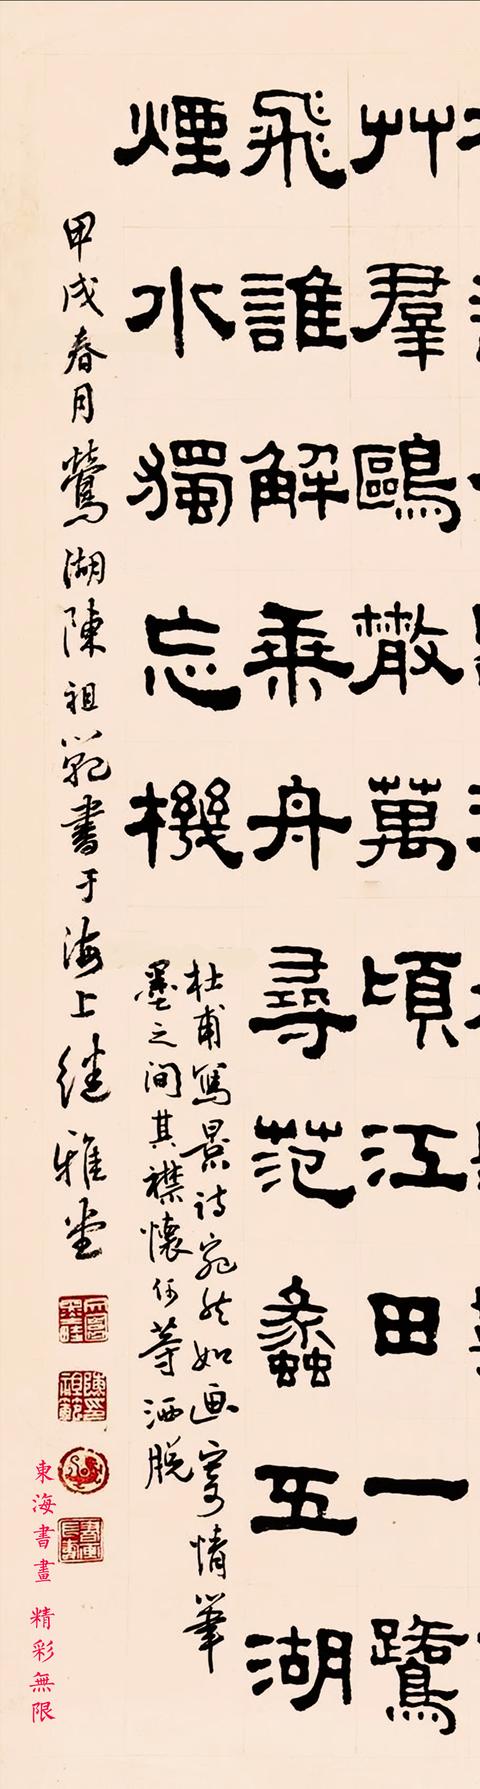 艸羣鷗散萬頃江田一鷺
飛誰解乘舟尋范蠡五湖
煙水獨忘機
杜甫寫景詩宛然如画寄情筆
墨之间其襟懷何等洒脱
甲戌春月鶯湖陳祖範書于海上继雅堂
陳印祖範
東海書畫 精彩無限